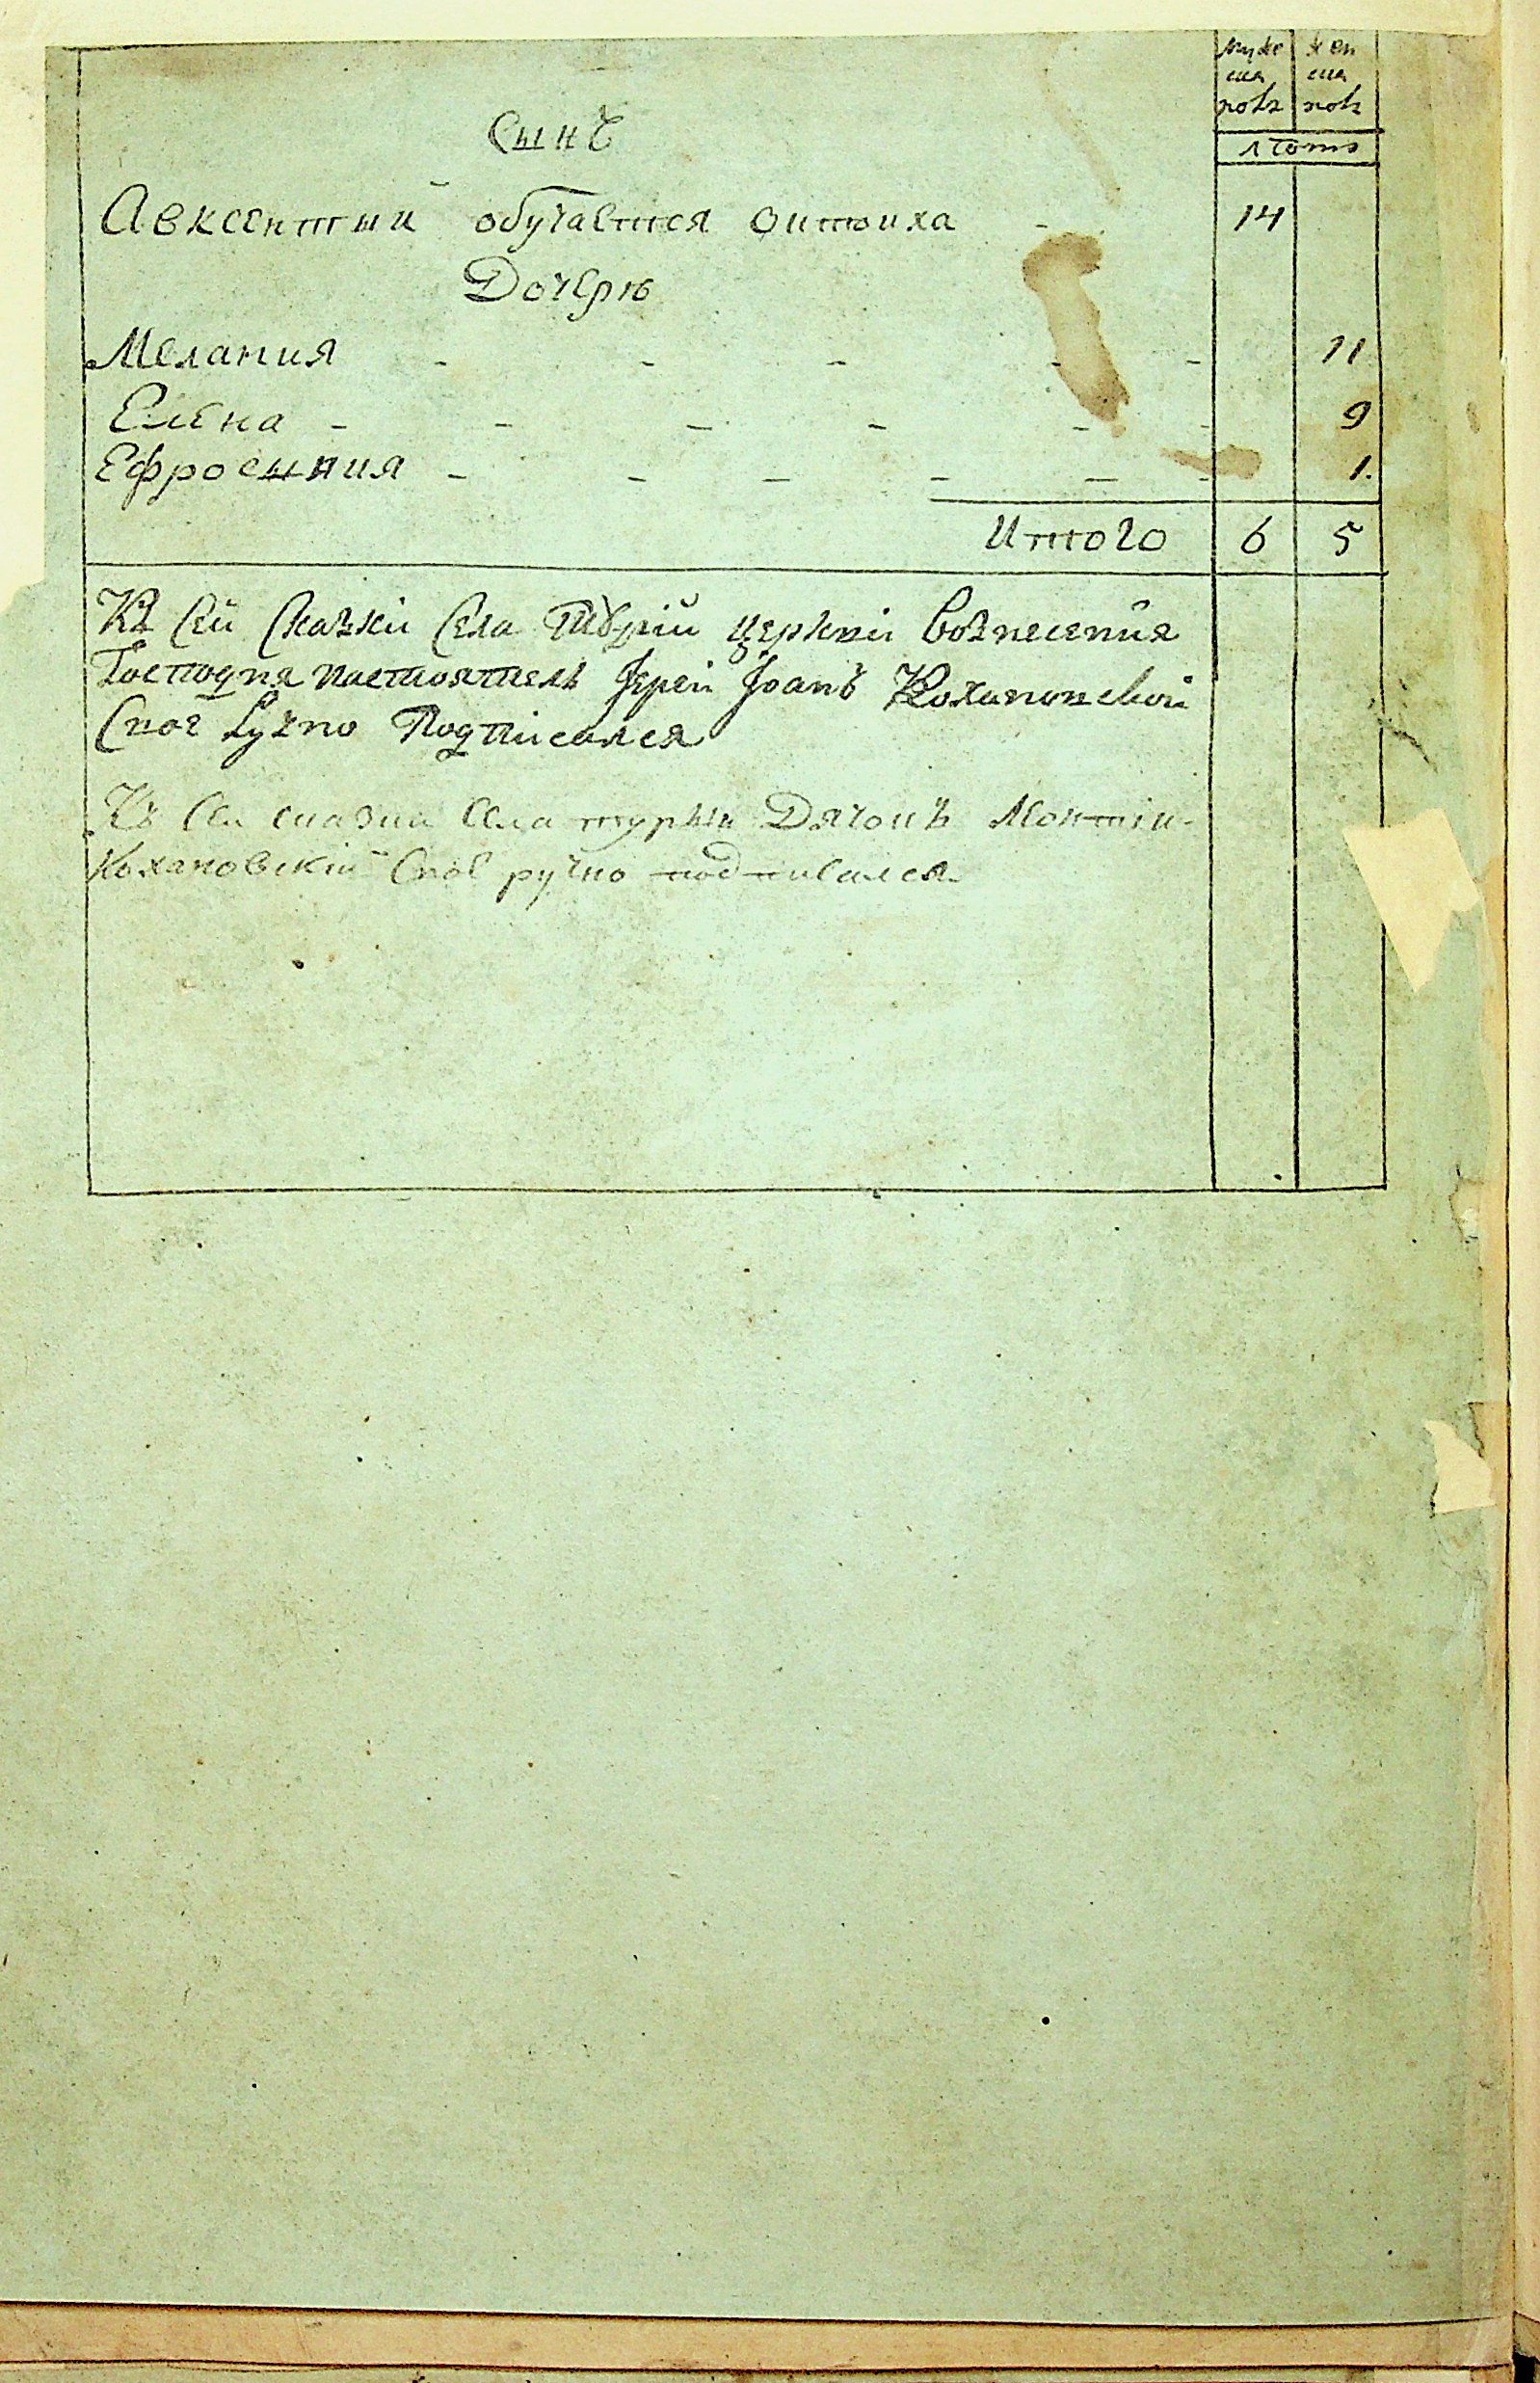 муже жен
ска ска
полъ полъ
лѣто
Сынъ
Авксентий обучается октоиха 14
Дочерѣ
Мелания 11
Елена 9
Ефросыния 1.
Итого 6 5
Къ Сей Сказкѣ Села Туріи церкви Вознесения
Господня настоятель Іерей Іоанъ Кохановскій
Свое ручно Подписался
Къ Сей сказки Села турьи Дячокъ Леонтій
Кохановский Свое ручно подписался